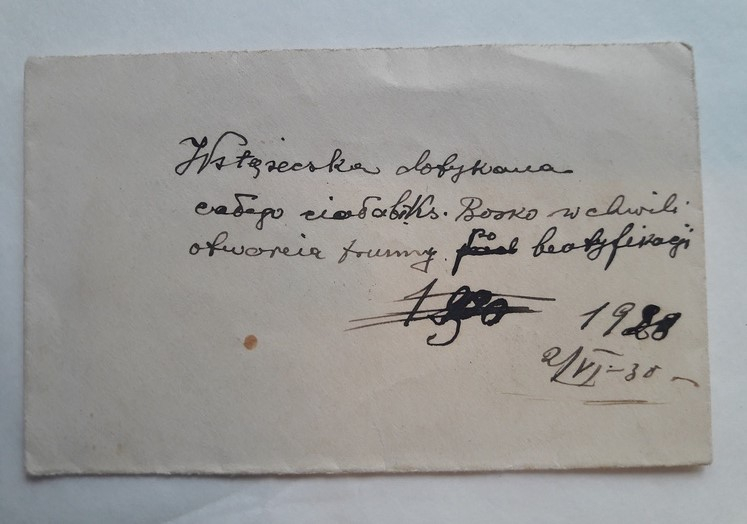 Wstążeczka dotykana
całego ciała bł. Ks. Bosko w chwili
otwarcia trumny po beatyfikacji
1929
2/VI-30